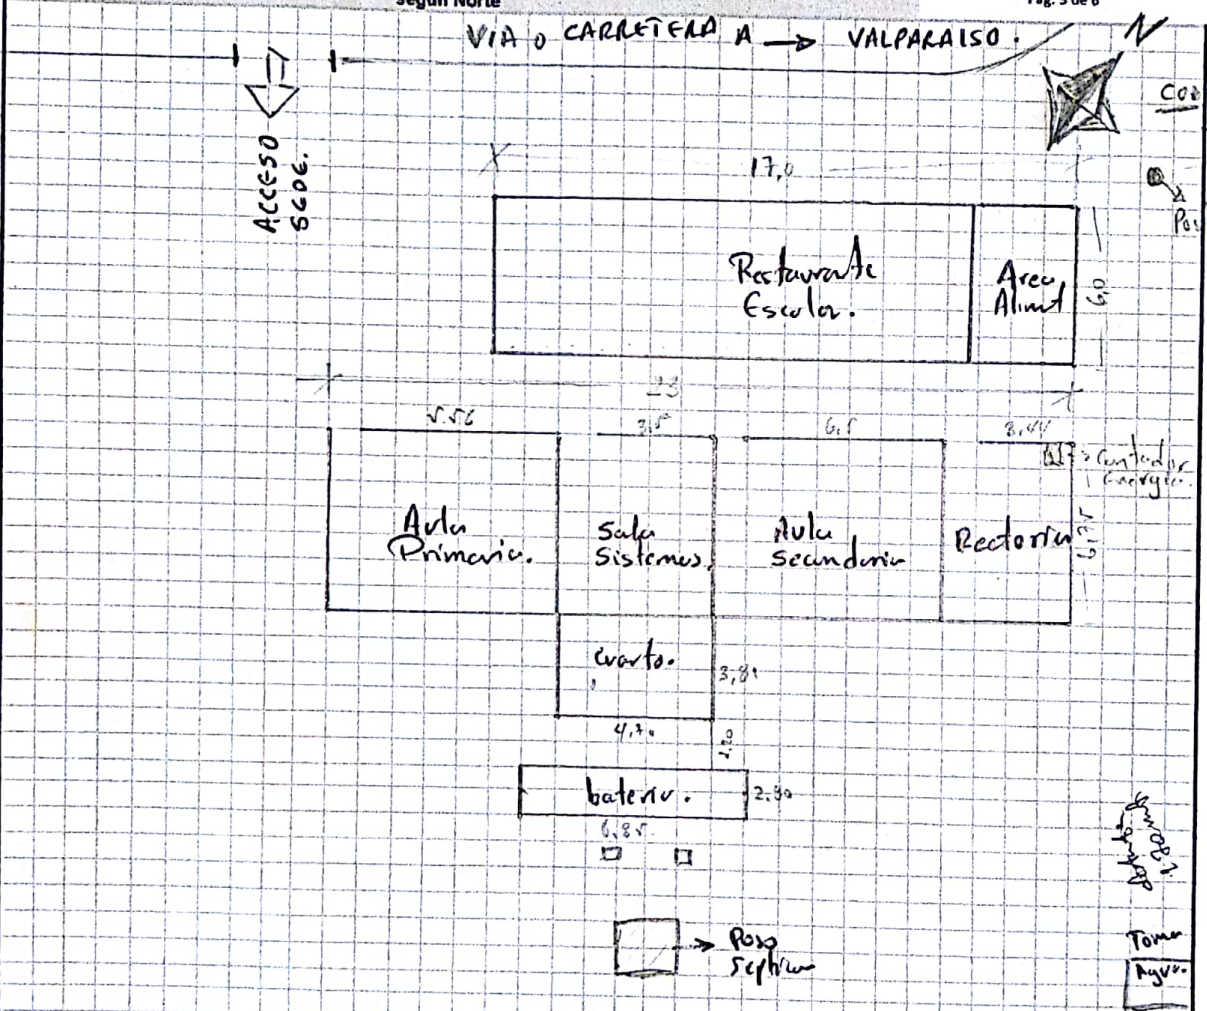 según Norte
Pág. 5 de 6
VIA O CARRETERA A → VALPARAISO.
N
ACCESO
SEDE.
17,0
Restaurante
Escolar.
Area
Alimt
6,0
23
5.56
6,5
Contador
Energia
Aula
Primaria.
Sala
Sistemas.
Aula
Secundaria
Rectoria
Cuarto.
3,80
4,70
bateria.
2.30
6,85
Poso
Septico
Toma
Agua.